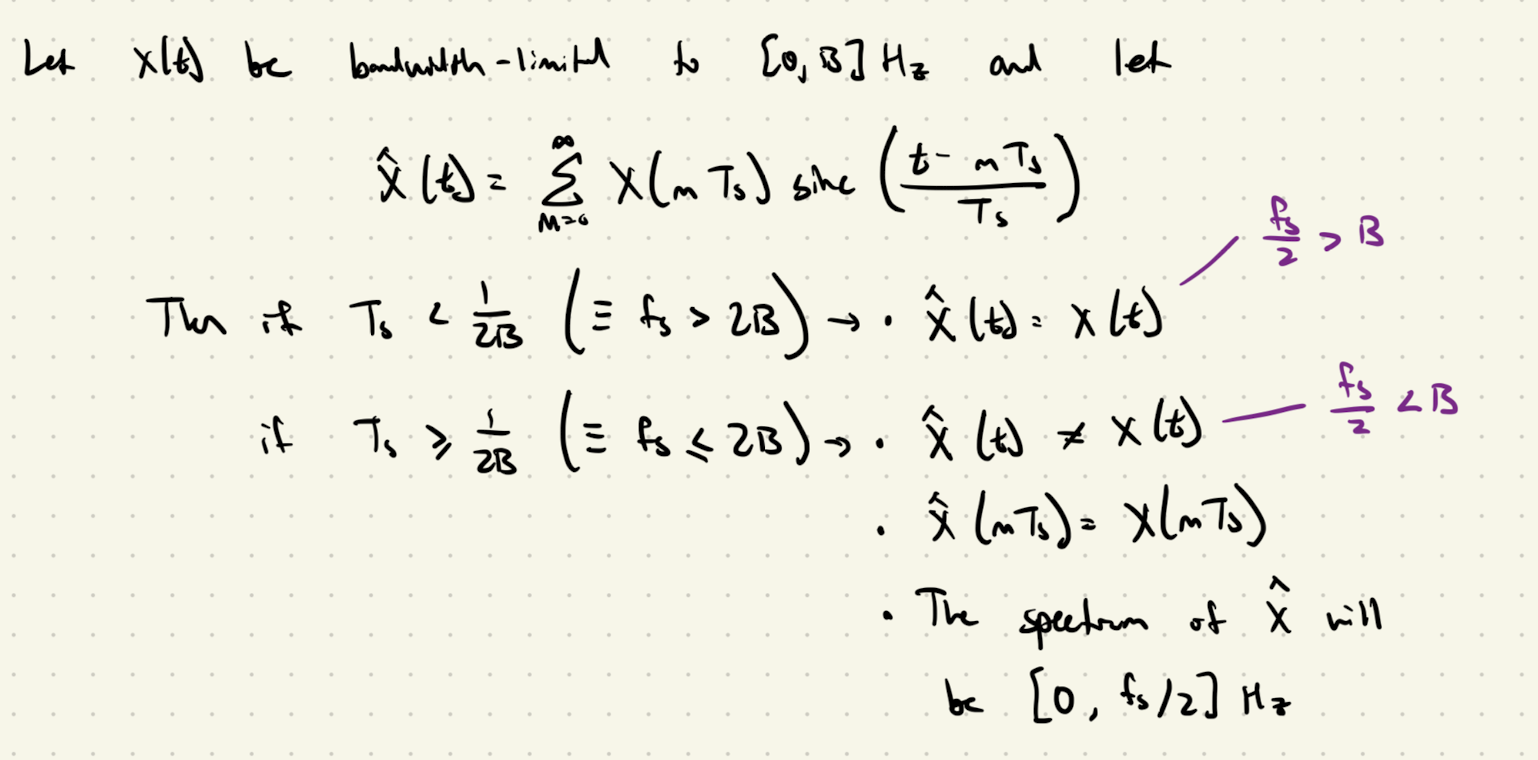 Let x(t) be bandwidth-limited to [0, B] Hz and let
x̂(t) = ∑_{m=0}^{∞} x(m Ts) sinc ((t - m Ts) / Ts)
fs/2 > B
Then if Ts < 1/2B (≡ fs > 2B) → • x̂(t) = x(t)
fs/2 < B
if Ts ⩾ 1/2B (≡ fs ⩽ 2B) → • x̂(t) ≠ x(t)
• x̂(mTs) = x(mTs)
• The spectrum of x̂ will
be [0, fs/2] Hz